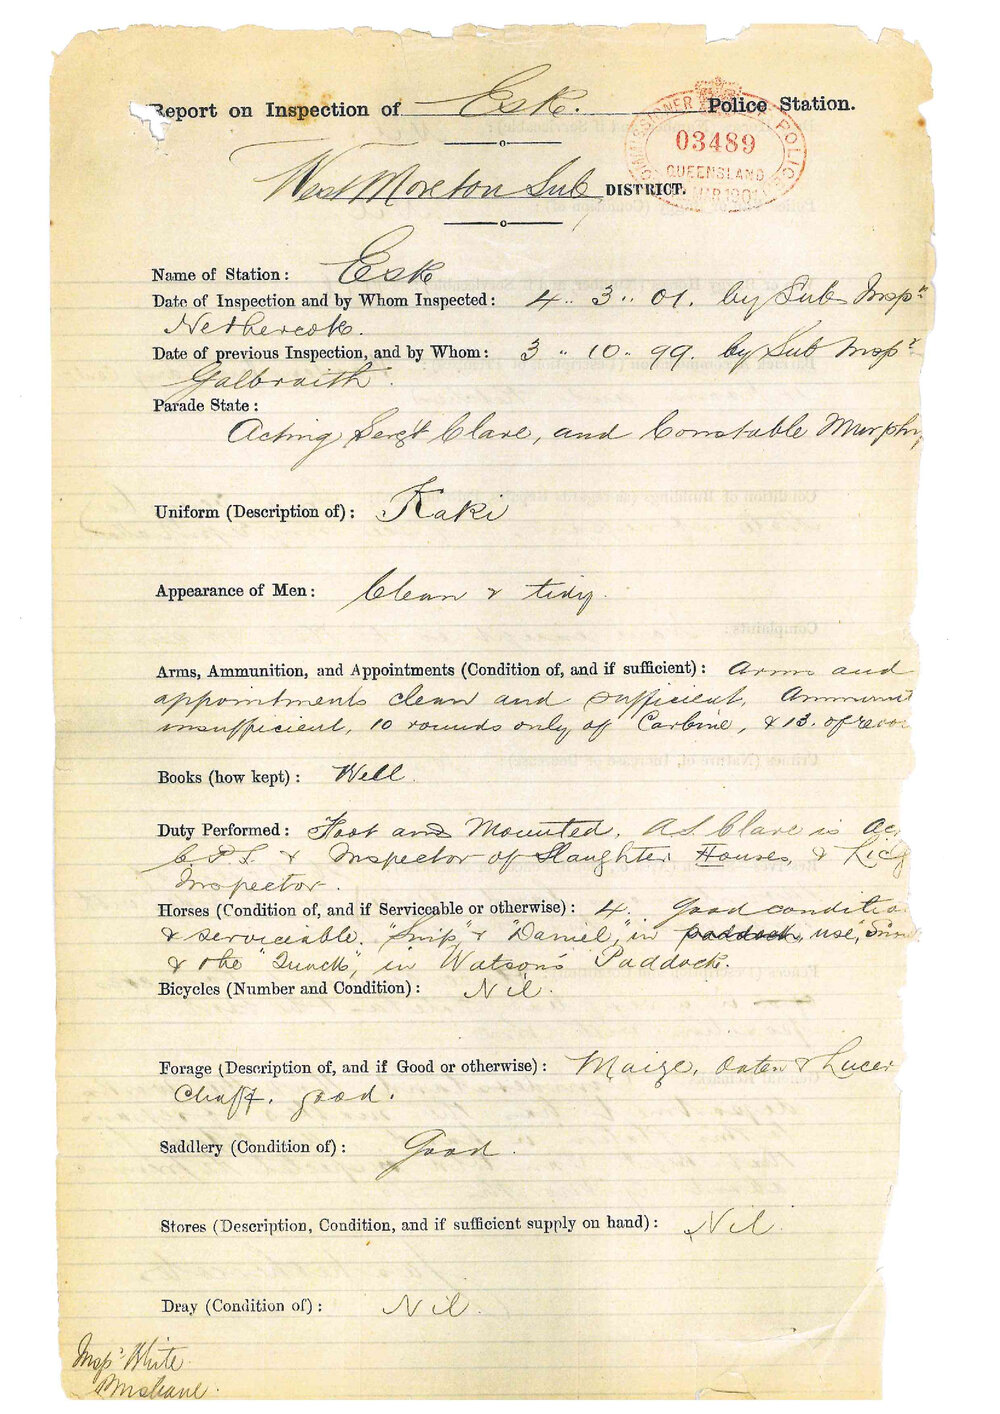 Report on Inspection of Esk. Police Station.
COMMISSIONER OF POLICE
03489
QUEENSLAND
MAR 1901
West Moreton Sub DISTRICT.
Name of Station: Esk
Date of Inspection and by Whom Inspected: 4.. 3.. 01. by Sub Inspr
Nethercote.
Date of previous Inspection, and by Whom: 3 .. 10 .. 99. by Sub Inspr
Galbraith.
Parade State:
Acting Sergt Clare, and Constable Murphy
Uniform (Description of): Kaki
Appearance of Men: Clean & tidy.
Arms, Ammunition, and Appointments (Condition of, and if sufficient): Arms and
appointments clean and sufficient, Ammunit
insufficient, 10 rounds only of Carbine, & 13. of revo
Books (how kept): Well.
Duty Performed: Foot and Mounted. A.S. Clare is Ac
C.P.S. & Inspector of Slaughter Houses, & Lic
Inspector.
Horses (Condition of, and if Serviceable or otherwise): 4. Good conditio
& serviceable. "Snip" & "Daniel," in paddock, use,
& the "Quack", in Watson's Paddock.
Bicycles (Number and Condition): Nil.
Forage (Description of, and if Good or otherwise): Maize, Oaten & Lucer
Chaff. good.
Saddlery (Condition of): Good.
Stores (Description, Condition, and if sufficient supply on hand): Nil.
Dray (Condition of): Nil.
Inspr White
Brisbane.